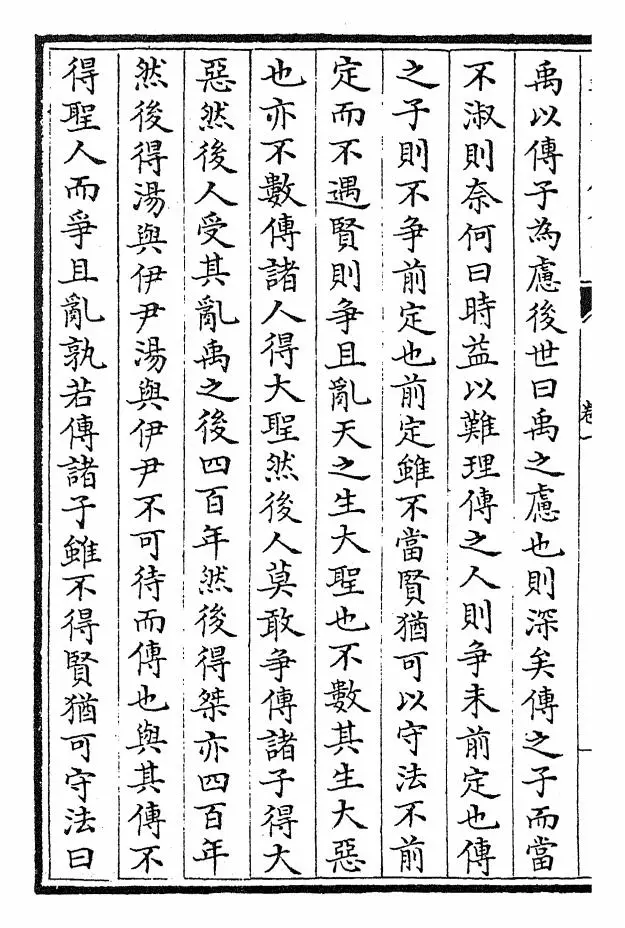 卷一
禹以傳子為慮後世曰禹之慮也則深矣傳之子而當
不淑則奈何曰時益以難理傳之人則争未前定也傳
之子則不争前定也前定雖不當賢猶可以守法不前
定而不遇賢則争且亂天之生大聖也不數其生大惡
也亦不數傳諸人得大聖然後人莫敢争傳諸子得大
惡然後人受其亂禹之後四百年然後得桀亦四百年
然後得湯與伊尹湯與伊尹不可待而傳也與其傳不
得聖人而爭且亂孰若傳諸子雖不得賢猶可守法曰